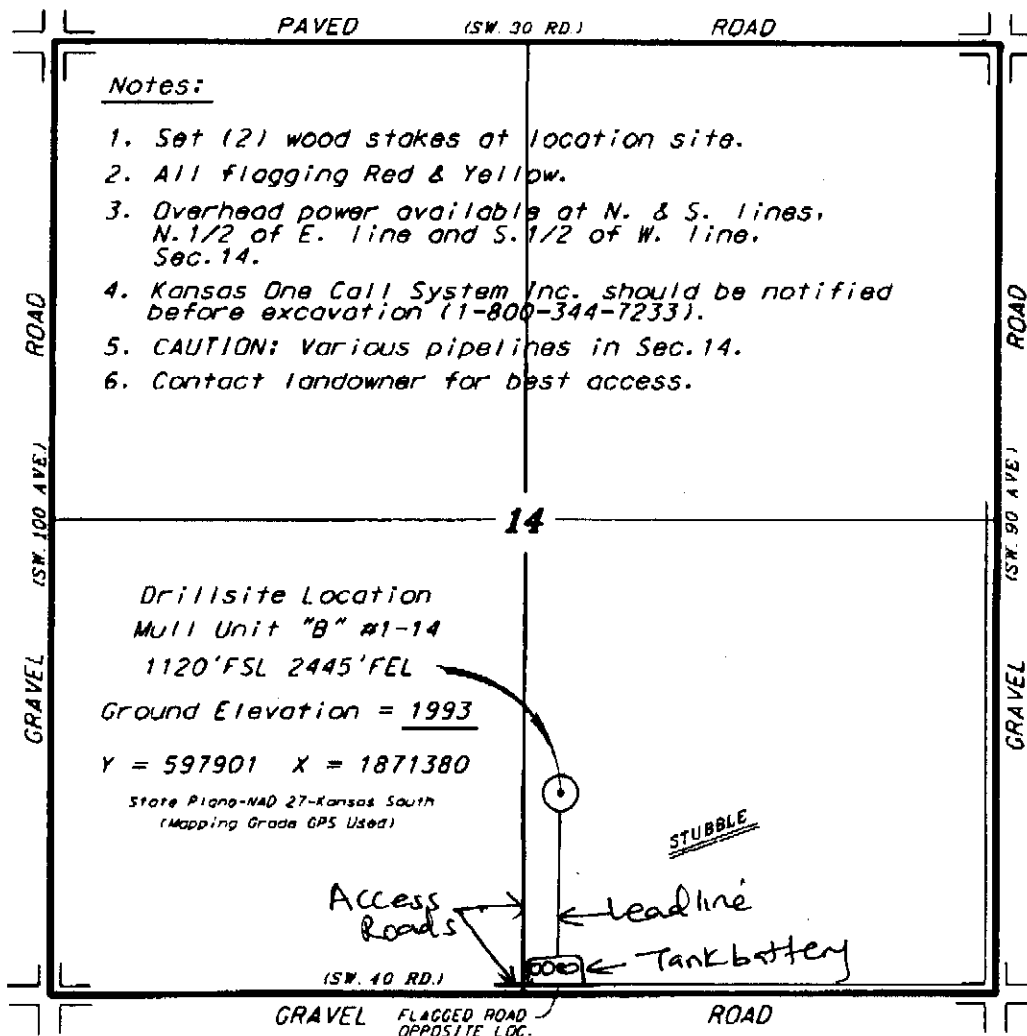 PAVED (SW. 30 RD.) ROAD
Notes:
1. Set (2) wood stakes at location site.
2. All flagging Red & Yellow.
3. Overhead power available at N. & S. lines,
N.1/2 of E. line and S.1/2 of W. line,
Sec.14.
4. Kansas One Call System Inc. should be notified
before excavation (1-800-344-7233).
5. CAUTION: Various pipelines in Sec.14.
6. Contact landowner for best access.
GRAVEL (SW. 100 AVE.) ROAD
GRAVEL (SW. 90 AVE) ROAD
14
Drillsite Location
Mull Unit "B" #1-14
1120'FSL 2445'FEL
Ground Elevation = 1993
Y = 597901 X = 1871380
State Plane-NAD 27-Kansas South
(Mapping Grade GPS Used)
STUBBLE
Access
Roads
Leadline
Tank battery
(SW. 40 RD.)
GRAVEL FLAGGED ROAD ROAD
OPPOSITE LOC.